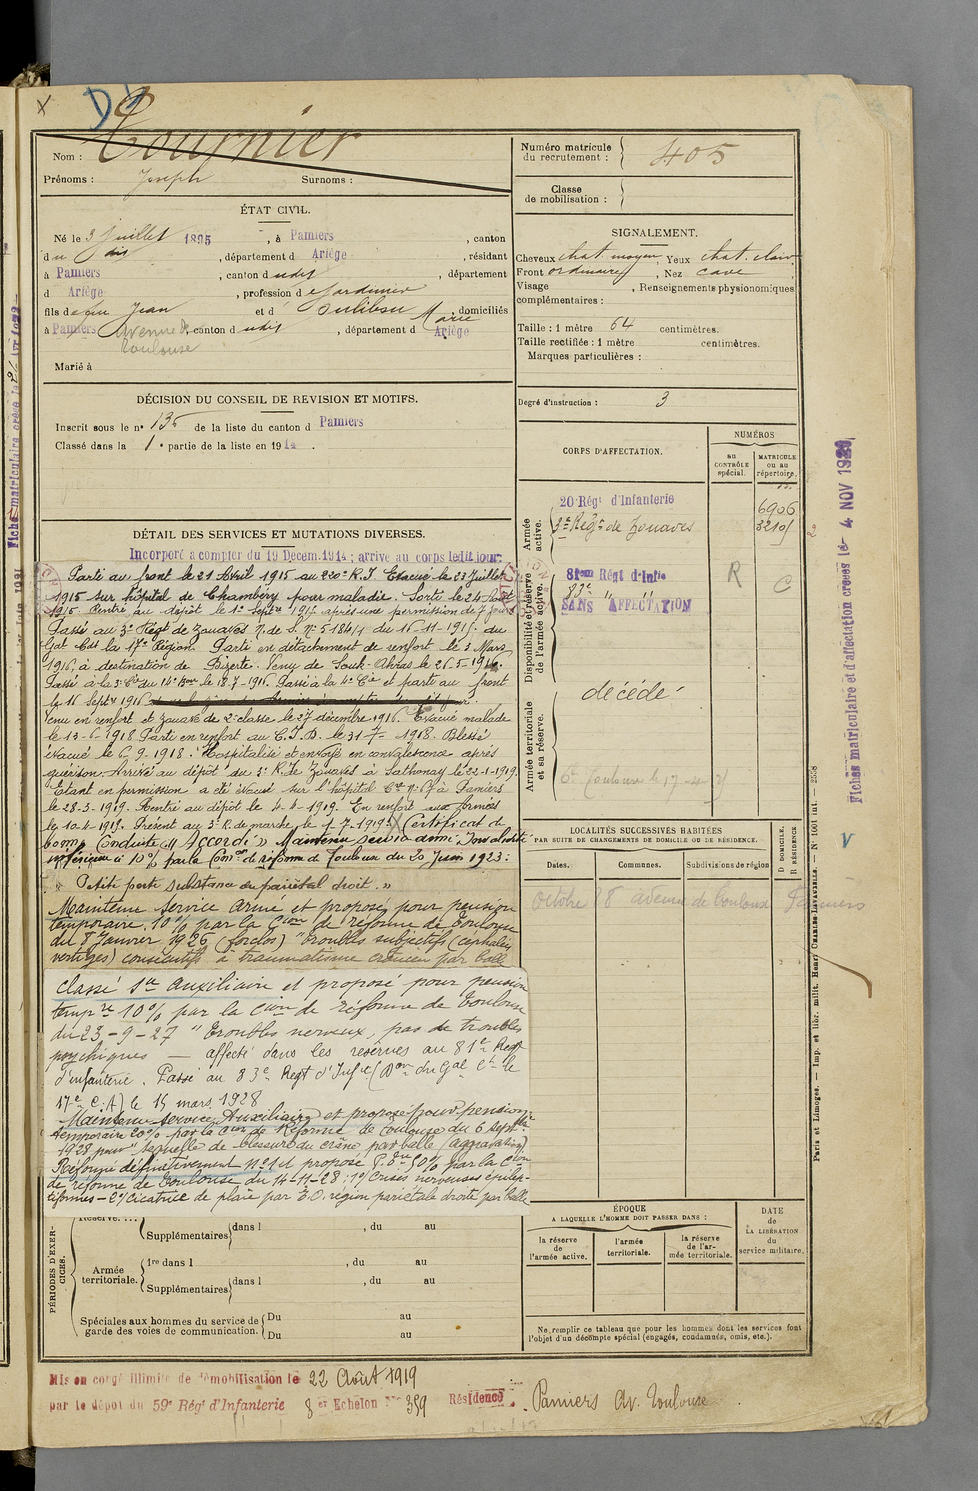 X
Nom : Tournier
Prénoms : Joseph Surnoms :
Numéro matricule du recrutement : 405
Classe de mobilisation :
ÉTAT CIVIL.
Né le 3 Juillet 1895, à Pamiers, canton
du dit, département d Ariège, résidant
à Pamiers, canton d udit, département
d Ariège, profession de Jardinier
fils de feu Jean et d Marie, domiciliés
à Pamiers Avenue de Toulouse canton d udit, département d Ariège
Marié à
SIGNALEMENT.
Cheveux chat. moyen, Yeux chat. clair
Front ordinaire, Nez cave
Visage , Renseignements physionomiques
complémentaires :
Taille : 1 mètre 64 centimètres.
Taille rectifiée : 1 mètre centimètres.
Marques particulières :
Degré d'instruction : 3
DÉCISION DU CONSEIL DE REVISION ET MOTIFS.
Inscrit sous le n° 135 de la liste du canton d Pamiers
Classé dans la 1e partie de la liste en 1914.
DÉTAIL DES SERVICES ET MUTATIONS DIVERSES.
Incorporé à compter du 19 Décem. 1914 ; arrivé au corps ledit jour.
Parti au front le 21 Avril 1915 au 220e R.I Evacué le 23 Juillet
1915 sur hôpital de Chambéry pour maladie. Sorti le 24 Août
1915. Rentré au dépôt le 1er Septre 1915 après une permission de 7 jours
Passé au 3e Régt de Zouaves N. de S. N° 5184/1 du 16-11-1915 du
Gal Cdt la 17e Région. Parti en détachement de renfort le 3 Mars
1916, à destination de Bizerte. Venu de Souk-Ahras le 26-5-1916.
Passé à la 3e Cie du 14e Bon le 18-7-1916. Passé à la 4e Cie et parti au front
le 16 Septre 1916
Venu en renfort et zouave de 2e classe le 27 décembre 1916. Evacué malade
le 13-6-1918 Parti en renfort au C.I.D. le 31-7-1918. Blessé
évacué le 6-9-1918. Hospitalisé et envoyé en convalescence après
guérison. Arrivé au dépôt du 3e R. de Zouaves à Sathonay le 22-1-1919.
Etant en permission a été évacué sur l'hôpital Cre N° 67 à Pamiers
le 28-3-1919. Rentré au dépôt le 4-4-1919. En renfort aux armées
le 10-4-1919. Présent au 3e R. de marche le 1-7-1919. Certificat de
bonne Conduite "Accordé" Maintenu service armé. Invalidité
inférieure à 10% par la Con de réforme de Toulouse du 20 Juin 1923 :
" Petite perte substance du pariétal droit. "
Maintenu Service armé et proposé pour pension
temporaire. 10% par la Con de réforme de Toulouse
du 8 Janvier 1926 (forclos) "troubles subjectifs (céphalées,
vertiges) consécutifs à traumatisme crânien par balle
classé Sce auxiliaire et proposé pour pension
tempre 10% par la Cion de réforme de Toulouse
du 23-9-27 " Troubles nerveux, pas de troubles
psychiques — affecté dans les réserves au 81e Régt
d'infanterie. Passé au 83e Régt d'Infie (Don du Gal Ct le
17e C.A) le 15 mars 1928
Maintenu service Auxiliaire et proposé pour pension
temporaire 20% par la Con de Réforme de Toulouse du 6 septbre
1928 pour "séquelle de blessure du crâne par balle (aggravation)
Réformé définitivement N°1 et proposé P. Dve 50% par la Con
de réforme de Toulouse du 14-11-28 : 1°/ Crises nerveuses épilep-
tiformes - 2°/ cicatrice de plaie par E.O. région pariétale droite par balle
CORPS D'AFFECTATION.
NUMÉROS
au CONTRÔLE spécial.
MATRICULE ou au répertoire.
Armée active.
20 Régt d'Infanterie 6906
3e Régt de Zouaves 3210
Disponibilité et réserve de l'armée active.
81eme Régt d'Infie R
83e " " C
SANS AFFECTATION
Armée territoriale et sa réserve.
décédé
LOCALITÉS SUCCESSIVES HABITÉES
PAR SUITE DE CHANGEMENTS DE DOMICILE OU DE RÉSIDENCE.
Dates. Communes. Subdivisions de région
D DOMICILE. R RÉSIDENCE
8 avenue de Toulouse Pamiers
PÉRIODES D'EXERCICES.
Réserve. ...
Supplémentaires dans l , du au
Armée territoriale.
1re dans l , du au
Supplémentaires dans l , du au
Spéciales aux hommes du service de garde des voies de communication.
Du au
Du au
ÉPOQUE
A LAQUELLE L'HOMME DOIT PASSER DANS :
la réserve de l'armée active.
l'armée territoriale.
la réserve de l'armée territoriale.
DATE de LA LIBÉRATION du service militaire.
Ne remplir ce tableau que pour les hommes dont les services font
l'objet d'un décompte spécial (engagés, condamnés, omis, etc.).
Mis en congé illimité de démobilisation le 22 Août 1919
par le dépôt du 59e Régt d'Infanterie 8 er Echelon N° 359 Résidence Pamiers Av. Toulouse
Fiches matriculaire et d'affectation créées le 4 NOV 1928
Paris et Limoges. — Imp. et libr. milit. Henri CHARLES-LAVAUZELLE. — N° 1001 int. — 2558